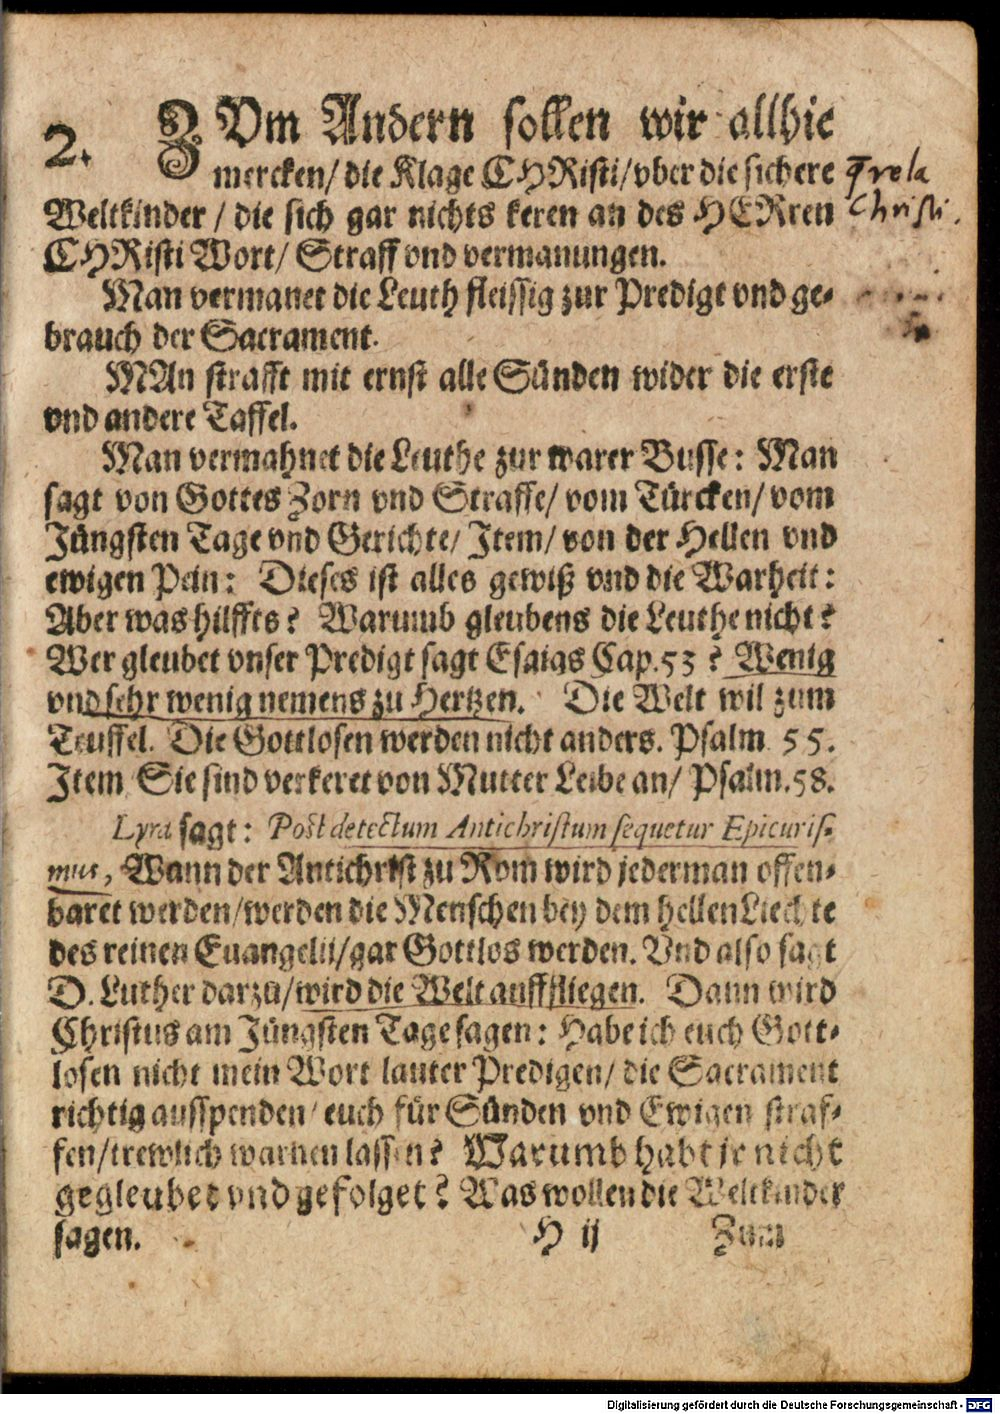 2. ZVm Andern sollen wir allhie
mercken/ die Klage CHRisti/ vber die sichere
Weltkinder / die sich gar nichts keren an des HERren
CHRisti Wort/ Straff vnd vermanungen.
Man vermanet die Leuth fleissig zur Predigt vnd ge-
brauch der Sacrament.
MAn strafft mit ernst alle Sünden wider die erste
vnd andere Taffel.
Man vermahnet die Leuthe zur warer Busse: Man
sagt von Gottes Zorn vnd Straffe/ vom Türcken/ vom
Jüngsten Tage vnd Gerichte/ Item/ von der Hellen vnd
ewigen Pein: Dieses ist alles gewiß vnd die Warheit:
Aber was hilffts? Warumb gleubens die Leuthe nicht?
Wer gleubet vnser Predigt sagt Esaias Cap. 53? Wenig
vnd sehr wenig nemens zu Hertzen. Die Welt wil zum
Teuffel. Die Gottlosen werden nicht anders. Psalm 55.
Item Sie sind verkeret von Mutter Leibe an/ Psalm. 58.
Lyra sagt: Post detectum Antichristum sequetur Epicuris-
mus, Wann der Antichrist zu Rom wird jederman offen-
baret werden/ werden die Menschen bey dem hellen Liechte
des reinen Euangelii/ gar Gottlos werden. Vnd also sagt
D. Luther darzu/ wird die Welt aufffliegen. Dann wird
Christus am Jüngsten Tage sagen: Habe ich euch Gott-
losen nicht mein Wort lauter Predigen/ die Sacrament
richtig ausspenden/ euch für Sünden vnd Ewigen straf-
fen/ trewlich warnen lassen? Warumb habt jr nicht
gegleubet vnd gefolget? Was wollen die Weltkinder
sagen.
H ij Zum
Christi.
Digitalisierung gefördert durch die Deutsche Forschungsgemeinschaft - DFG